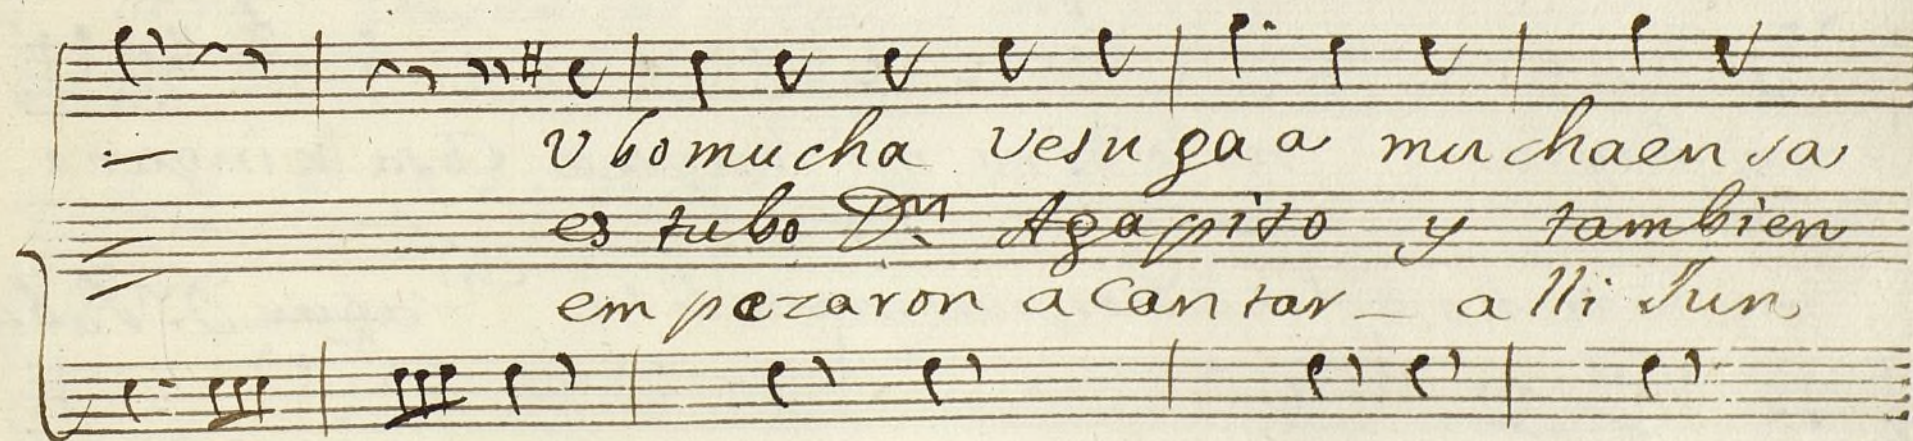 Ubo mucha vesugaa muchaensa
estubo Dn Agapito y tambien
empezaron a Cantar - alli Jun